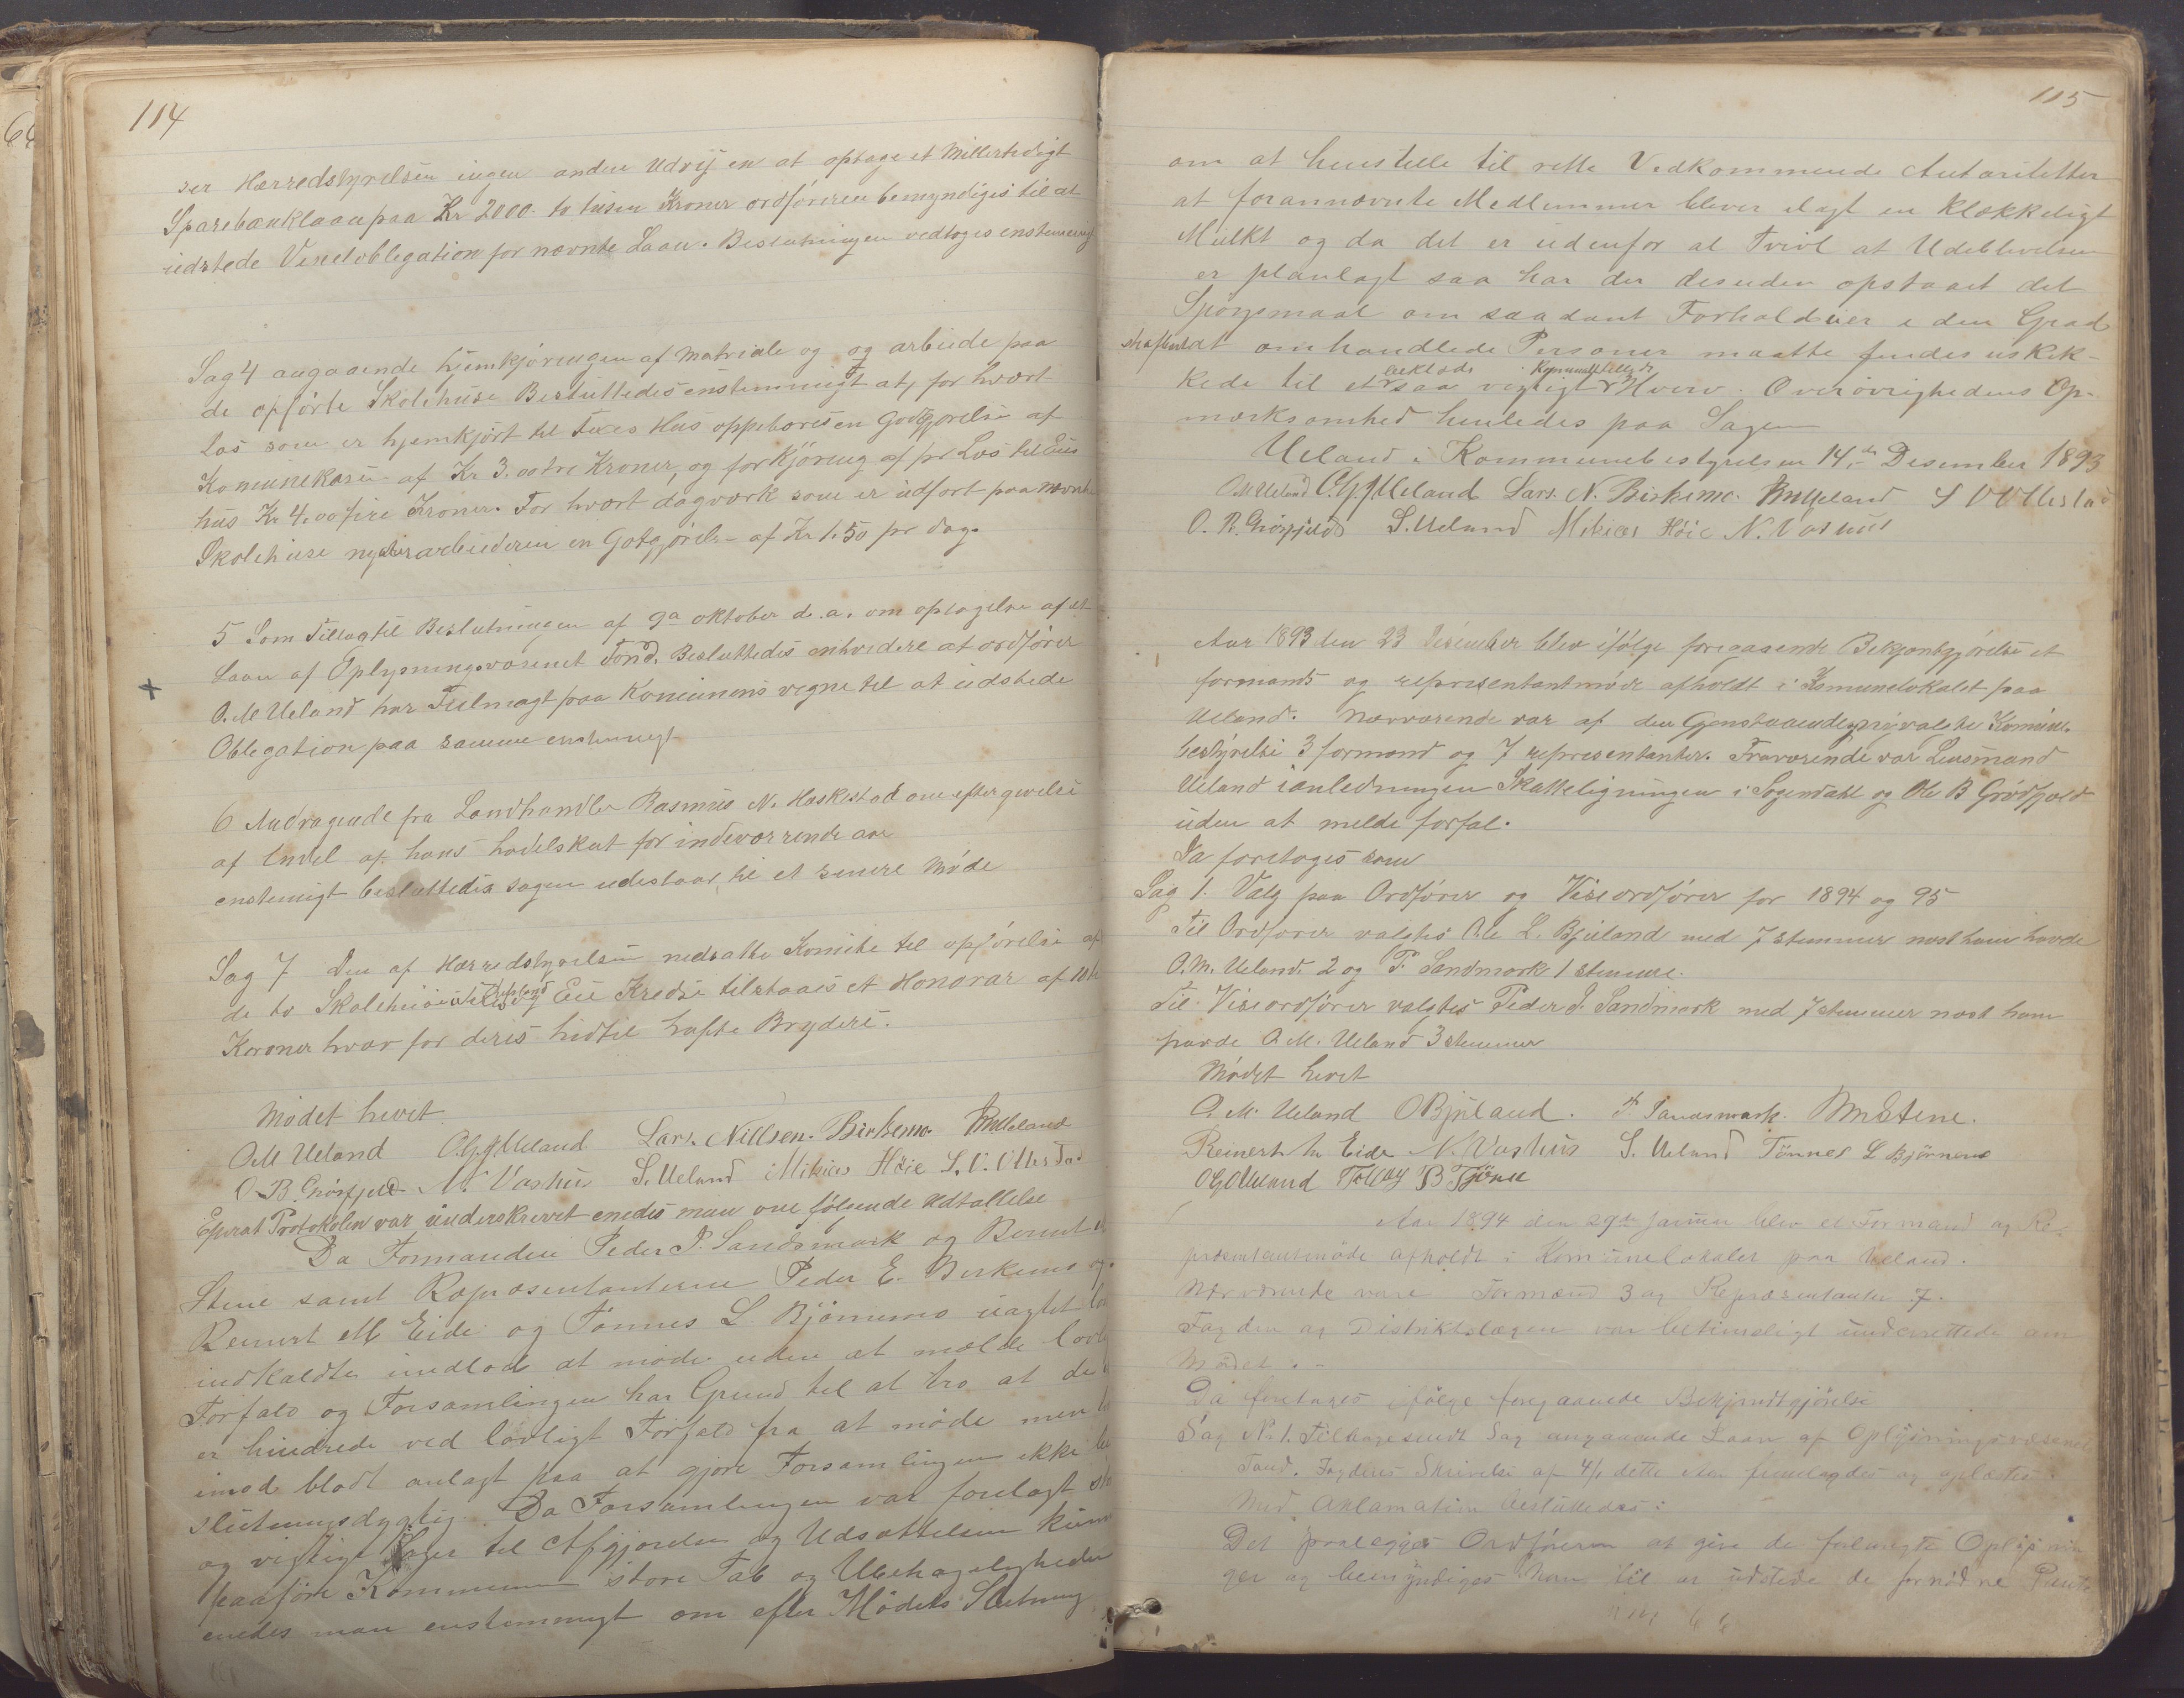 114
ser Herredstyrelsen ingen anden Udvij en at optage et Millertidigt
Sparebanklaan paa Kr 2000. to tusen Kroner ordföreren bemyndiges til at
udstede Vexelobligation for nævnte Laan. Beslutningen vedtoges enstemmigt
Sag 4 angaaende hjemkjöringen af Matriale og og arbeide paa
de opförte Skolehuse Besluttedes enstemmigt at, for hvært
Las som er hjemkjört til Hus oppebæres en Godtgjørelse af
Komunekasse af Kr 3.00 tre Kroner, og for Kjöring af pr Las til Eiis
hus Kr 4.00 fire Kroner. For hvært dagværk som er udfört paa nævnte
Skolehuse nyder arbeideren en Gotgjörelse af Kr 1.50 pr dag.
5 Som Tillæg til Beslutningen af 9a oktober d.a. om optagelse af et
Laan af Oplysningsvæsenet Fond. Besluttedes enhvidere at ordförer
O. M Ueland har Fulmagt paa Komunens vegne til at udstede
+
Oblegation paa samme enstemmigt
6 Andragende fra Landhandler Rasmus N. Haskestad om eftergivelse
af Endel af hans hadelskat for indeværrende aar
enstemigt besluttedes sagen udestaar til et senere Möde
Sag 7 Den af Herredstyrelsen nedsatte Komite til opförelse af
de to Skolehuse i Ueland og Eie Kredse tilstaaes et Honorar af 10 ti
Kroner hvær for deres hidtil hafte Bryderi.
Mødet hevet
O M Ueland O. G. Ueland Lars. Nillsen. Birkemo. Ueland
O. B. Grösfjeld N. Vashus S. Ueland Mikias Höie S. V. Ollestad
Efterat Protokolen var underskrevet enedes man om fölgende Udtallelse
Da Formanden Peder P. Sandsmark og Bernt
Stene samt Repræsentanterne Peder E. Birkemo og
Reinert M Eide og Tönnes L. Björnemo uagtet
indkaldte undlod at møde uden at mælde lovl
Forfald og Forsamlingen har Grund til at tro at de
er hindrede ved lovligt Forfald fra at møde men
imod blodt anlagt paa at gjøre Forsamlingen ikke
slutningsdygtig. Da Forsamlingen var forelagt
og vigtige Sager til Afgjørelse og Udsættelsen kun
paaføre Kommunen store Tab og Ubehageligheder
enedes man enstemmigt om efter Mödets Slutning
115
om at henstille til rette Vedkommende Autoriteter
at forannævnte Medlemmer bliver ilagt en klækkeligt
Mulkt og da det er udenfor al Tvivl at Udeblivelsen
er planlagt saa har der desuden opstaaet det
Spørgsmaal om saadant Forhold ikke er i den Grad
skafferlidt omhandlede Personer maatte findes uskik-
kede til et saa vigtigt Hverv. Overøvrighedens Op-
mærksomhed henledes paa Sagen
Ueland i Kommunebestyrelsen 14. de Desember 1893
O M Ueland O. G. Ueland Lars. N. Birkemo. Ueland S V Ollestad
O. B. Grösfjeld S. Ueland Mikias Höie N. Vashus
Aar 1893 den 23 Desember blev ifölge foregaaende Bekjentgjörelse et
formands og representantmöde afholdt i Komunelokalet paa
Ueland. Nærværende var af den Genstaaende nyvalgte Komune-
bestyrelse 3 formænd og 7 representanter. Fraværende var Lensmand
Ueland i anledningen Skatteligningen i Sogendahl og Ole B Grösfjeld
uden at melde forfal.
Da foretoges som
Sag 1. Valg paa Ordförer og Viseordförer for 1894 og 95
Til Ordförer valgtes Ole L. Bjuland med 7 stemmer næst ham havde
O. M. Ueland. 2 og P. Sandmark 1 stemme.
Til Viseordförer valgtes Peder P. Sandmark med 7 stemmer næst ham
havde O. M. Ueland 3 stemmer
Mödet hevet
O. M. Ueland O Bjuland. P. Sandsmark. Stene.
Reinert M Eide N. Vashus S. Ueland Tönnes L Björnemo
O G Ueland Tollag B Tjörn
Aar 1894 den 29de Januar blev et Formand og Re-
præsentantmöde afholdt i Komunelokalet paa Ueland.
Nærværende vare Formænd 3 og Repræsentanter 7.
Fogden og Distriktslægen var betimeligt underrettede om
Mödet. -
Da foretages ifölge foregaaende Bekjendtgjörelse
Sag No 1. Tilbagesendt Sag angaaende Laan af Oplysningsvæsenets
Fond. Fogderis Skrivelse af 4/1 dette Aar fremlagdes og oplæstes.
Med Aklamation besluttedes:
Det paalegges Ordföreren at give de forlangte Oplysnin
ger og bemyndiges han til at udstede de fornödne